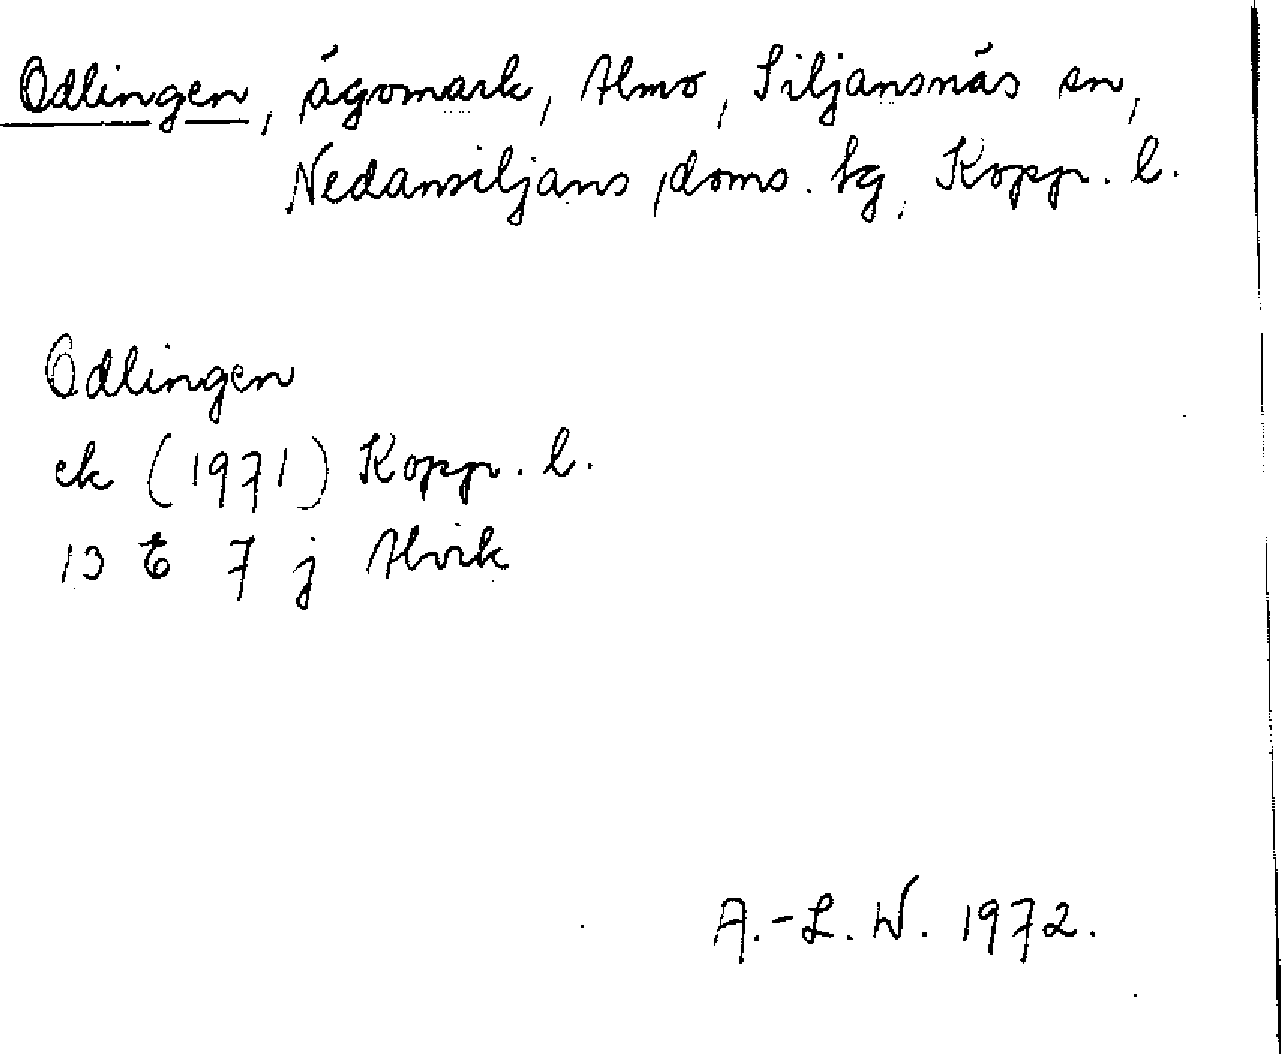 Odlingen, ägomark, Almo, Siljansnäs sn,
Nedansiljans doms. tg, Kopp. l.
Odlingen
ek (1971) Kopp. l.
13 E 7 j Alvik
A.-L. W. 1972.